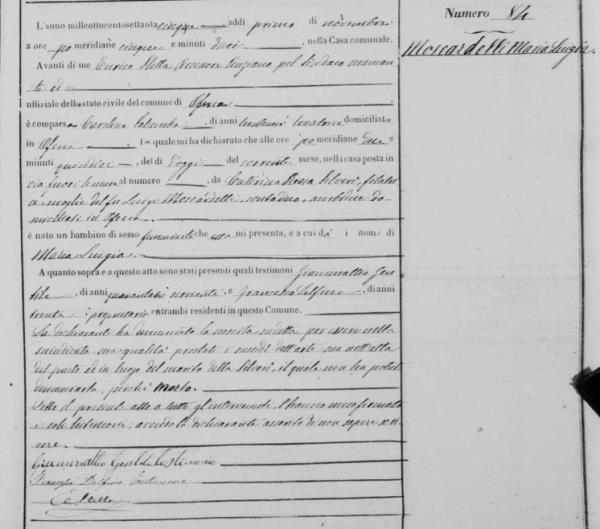 Numero 84
Moscardelli Maria Luigia
L'anno milleottocentosettanta cinque addì primo di novembre
a ore po meridiane cinque e minuti dieci, nella Casa comunale.
Avanti di me Enrico Assessore anziano pel Sindaco mancan
te ed
uffiziale dello stato civile del comune di Ofena
è comparsa Carolina, di anni levatrice domiciliata
in Ofena. La quale mi ha dichiarato che alle ore po meridiane due e
minuti quindici, del dì d'oggi del corrente mese, nella casa posta in
via fuori le mura al numero, da Caterina Rossa Silveri, filatri
a moglie del fu Luigi Moscardelli contadino, ambidue do
miciliati in Ofena
è nato un bambino di sesso femminile che essa mi presenta, e a cui dà i nomi di
Maria Luigia
A quanto sopra e a questo atto sono stati presenti quali testimoni Giammatteo Gen
tile, di anni quarantasei, e Francesco Delfino, di anni
trenta proprietario, entrambi residenti in questo Comune.
La dichiarante ha denunciato la nascita suddetta per essere nella
suindicata sua qualità prestati i rimedi dell'arte sua nell'atto
del parto ed in luogo del marito della Silveri, il quale non ha potuto
denunciarla, perchè morto.
Letto il presente atto a tutti gl'intervenuti, l'hanno meco firmato
i soli testimoni, avendo la dichiarante asserito di non sapere scri
vere.
Giammatteo Gentile testimonio
Francesco Delfino testimone